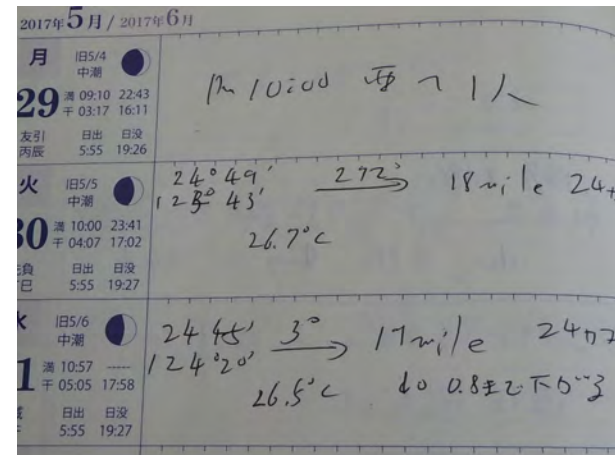 2017年5月 / 2017年6月
月 旧5/4
中潮
29 満 09:10 22:43
干 03:17 16:11
友引 日出 日没
丙辰 5:55 19:26
10:00 西へ1人
火 旧5/5
中潮
30 満 10:00 23:41
干 04:07 17:02
負 日出 日没
巳 5:55 19:27
24°49' 272° 18mile 24
43'
26.7°C
旧5/6
中潮
1 満 10:57 -----
干 05:05 17:58
日出 日没
5:55 19:27
24 45' 3° 17mile 24
124°20'
26.5°C do 0.8